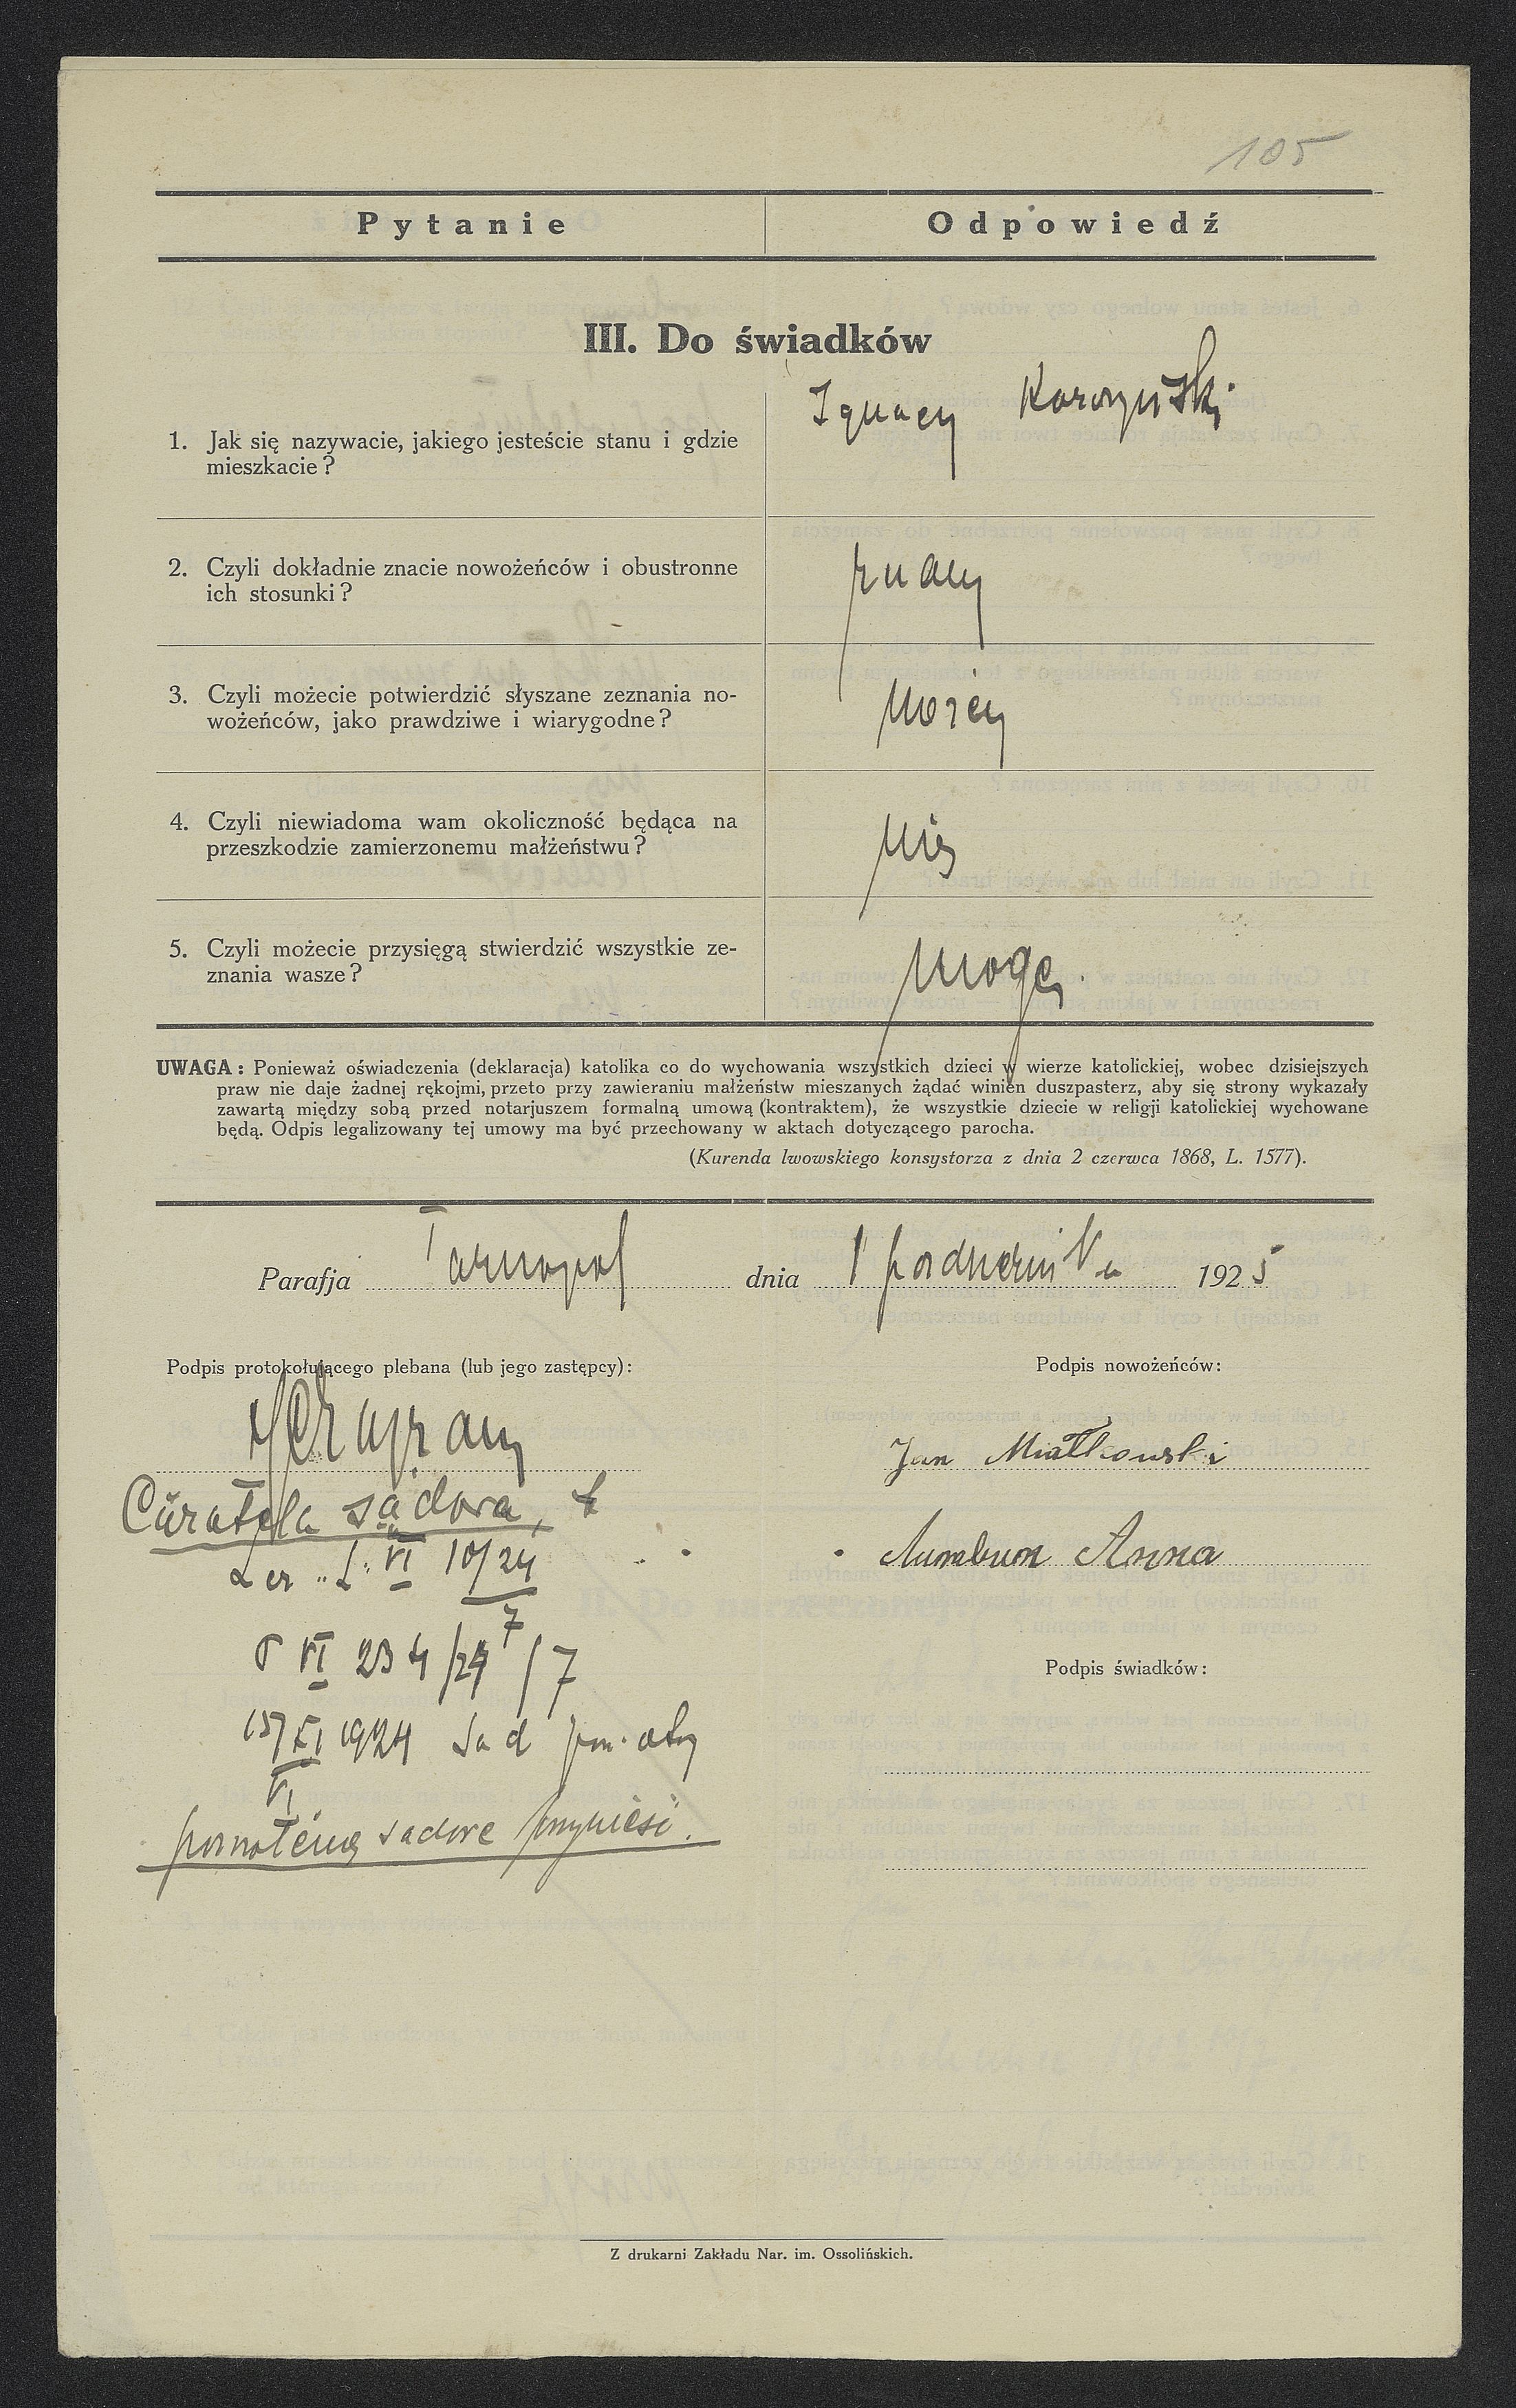 105
Pytanie Odpowiedź
III. Do świadków
Ignacy
1. Jak się nazywacie, jakiego jesteście stanu i gdzie
mieszkacie?
2. Czyli dokładnie znacie nowożeńców i obustronne
ich stosunki?
znamy
3. Czyli możecie potwierdzić słyszane zeznania no-
wożeńców, jako prawdziwe i wiarygodne?
4. Czyli niewiadoma wam okoliczność będąca na
przeszkodzie zamierzonemu małżeństwu?
Nie
5. Czyli możecie przysięgą stwierdzić wszystkie ze-
znania wasze?
mogę.
UWAGA: Ponieważ oświadczenia (deklaracja) katolika co do wychowania wszystkich dzieci w wierze katolickiej, wobec dzisiejszych
praw nie daje żadnej rękojmi, przeto przy zawieraniu małżeństw mieszanych żądać winien duszpasterz, aby się strony wykazały
zawartą między sobą przed notarjuszem formalną umową (kontraktem), że wszystkie dziecie w religji katolickiej wychowane
będą. Odpis legalizowany tej umowy ma być przechowany w aktach dotyczącego parocha.
(Kurenda lwowskiego konsystorza z dnia 2 czerwca 1868, L. 1577).
Parafja Tarnopol dnia 1 października 1925
Podpis protokołującego plebana (lub jego zastępcy):
Podpis nowożeńców:
Jan Miałkowski
Curatela sądowa,
Anna
L. VI 10/24
7
VI 234/24 / 7
Podpis świadków:
15/XI 1924 Sąd pow.
VI
sądowe przynieść.
Z drukarni Zakładu Nar. im. Ossolińskich.